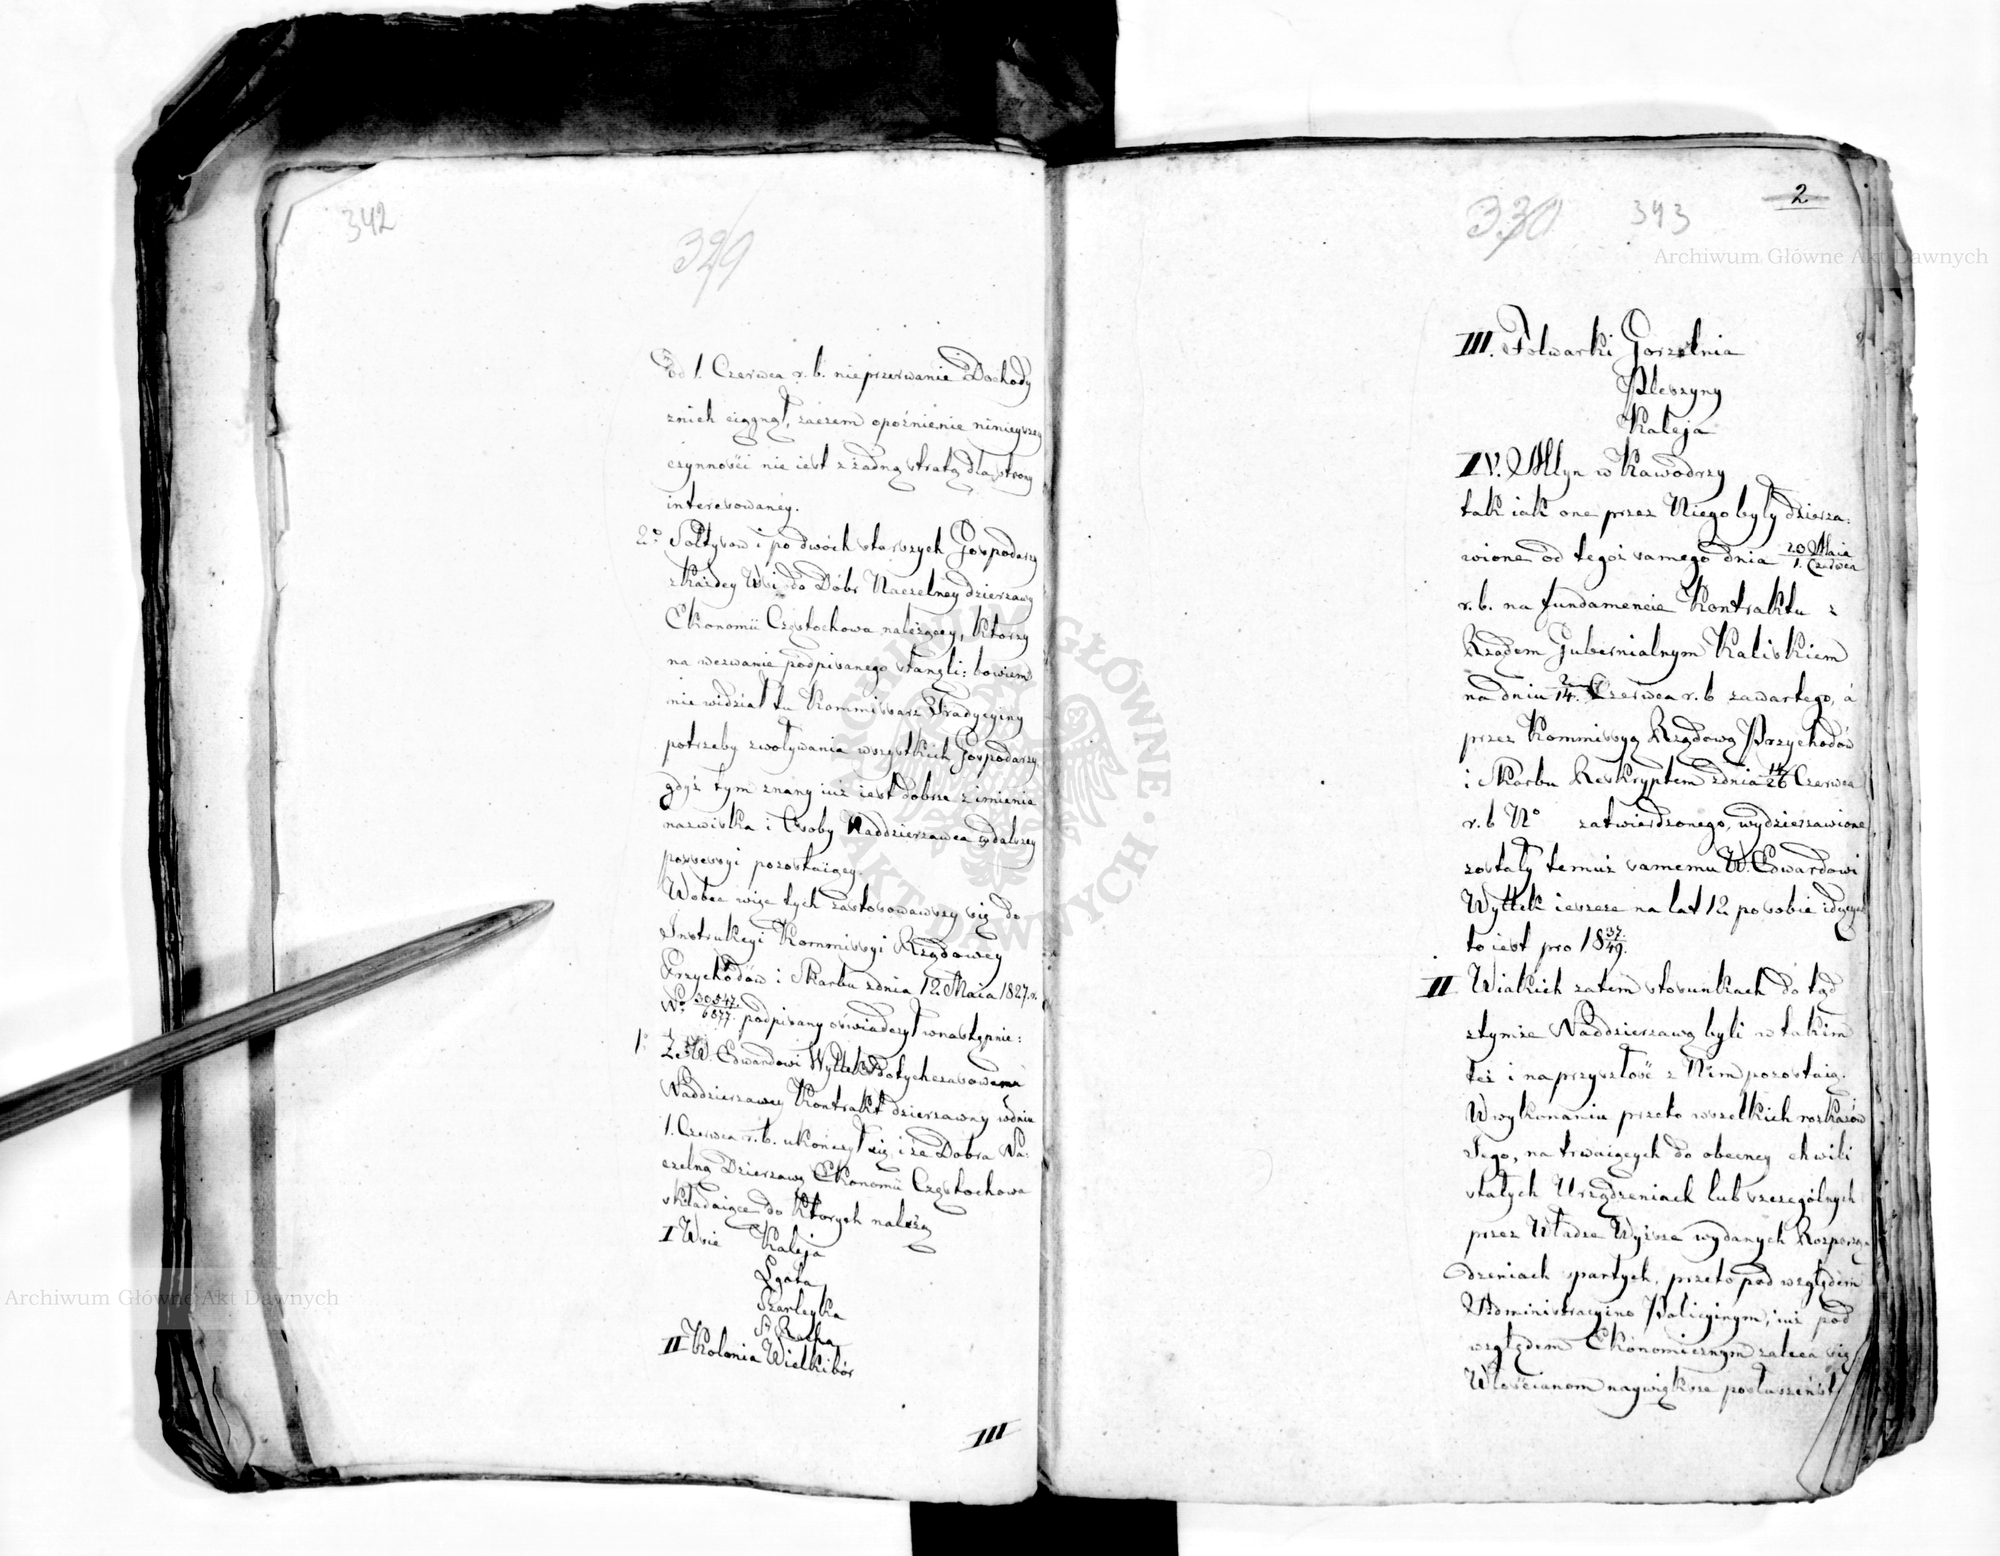 342
329
od 1. Czerwca r. b. nieprzerwanie Dochody
znich ciągnął, zaczem opóźnienie ninieyszey
czynności nie iest z żadną stratą dla strony
interesowanéy.
2° Sołtysow i po dwóch starszych Gospodarzy
z każdey Wsi do Dóbr Naczelney dzierzawy
Ekonomii Częstochowa należący, którzy
na wezwanie podpisanego stanęli: bowiem
nie widział tu Kommissarz Tradycyiny
potrzeby zwoływania wszystkich Gospodarzy,
gdyż tym znany iuż iest dobrze z imienia
nazwiska i Osoby Naddzierzawca w dalszey
possessyi pozostaiący.
Wobec więc tych zastosowawszy się do
Instrukcyi Kommissyi Rządowey
Przychodów i Skarbu zdnia 12. Maia 1827. r.
N° 30547./6877. podpisany oświadczył wnastępnie:
1° Że W. Edwardowi Wyttek dotychczasowemu
Naddzierzawcy Kontrakt dzierzawny wdniu
1. Czerwca r. b. ukończył się, i że Dobra Na:
czelną Dzierzawę Ekonomii Częstochowa
składaiące do których należą
I Wsie Kaleja
Lgota
Szarleyka
II Kolonia Wielkibór
III
330
343
2
III. Folwarki Gorzelnia
Pleszyny
Kaleja
IV. Młyn w Kawodrzy
tak iak one przez Niego były dzierza:
wione od tegoż samego dnia 20 Maia/1. Czerwca
r. b. na fundamencie Kontraktu z
Rządem Gubernialnym Kaliskiem
na dniu 2/14. Czerwca r. b. zawartego, á
przez Kommissyą Rządową Przychodów
i Skarbu Reskryptem zdnia 14/26 Czerwca
r. b N° zatwierdzonego, wydzierzawione
zostały temuż samemu W. Edwardowi
Wyttek ieszcze na lat 12 po sobie idących
to iest pro 18 37./49.
II W iakich zatem stosunkach do tąd
ztymże Naddzierzawcą byli w takim
też i na przyszłość z Nim pozostaią.
W wykonaniu przeto wszelkich rozkazów
Jego, na trwaiących do obecney chwili
stałych Urządzeniach lub szczególnych
przez Władze Wyższe wydanych Rozporzą
dzeniach opartych, przeto pod względem
Administracyino Policyinym, iuż pod
względem Ekonomicznym zaleca się
Włościanom naywiększe posłuszeńst
Archiwum Główne Akt Dawnych
Archiwum Główne Akt Dawnych
ARCHIWUM GŁÓWNE · AKT DAWNYCH ·